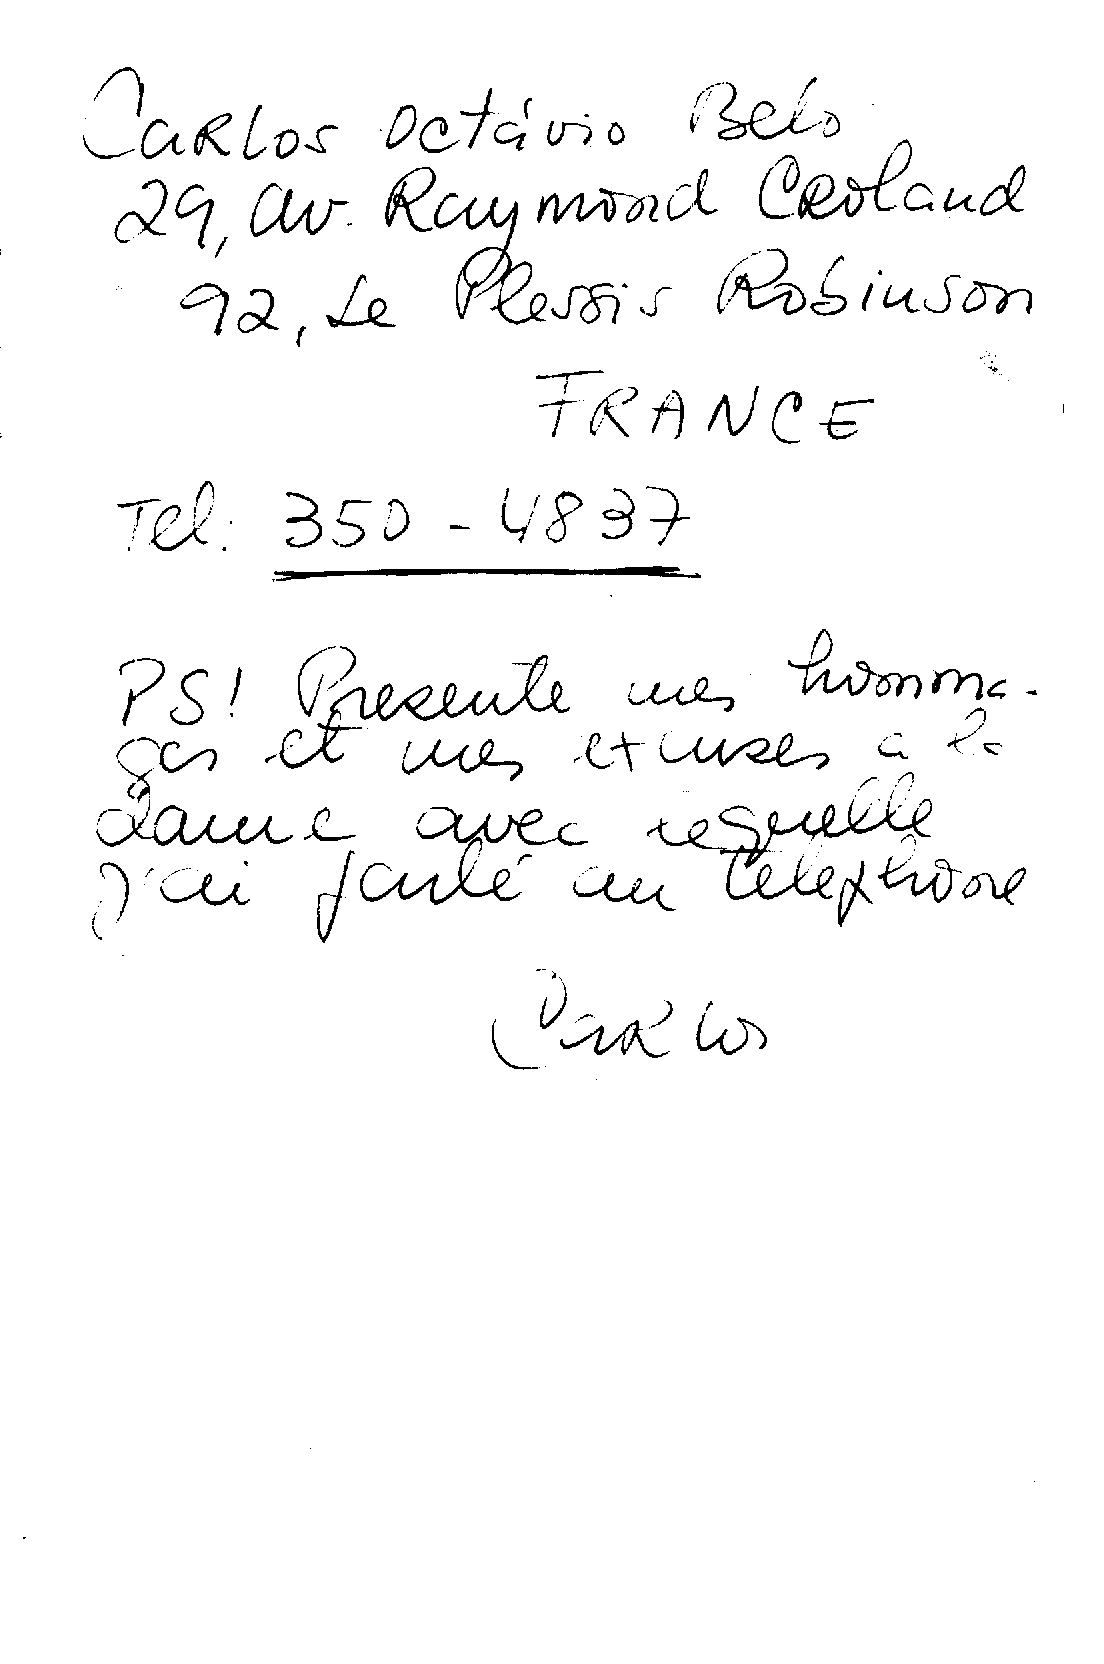 Carlos Octávio Belo
29, av. Raymond Croland
92, Le Plessis Robinson
FRANCE
Tel: 350-4837
PS! Presente mes homma-
ges et mes excuses a la
dame avec lequelle
j'ai parlé au telephone
Carlos